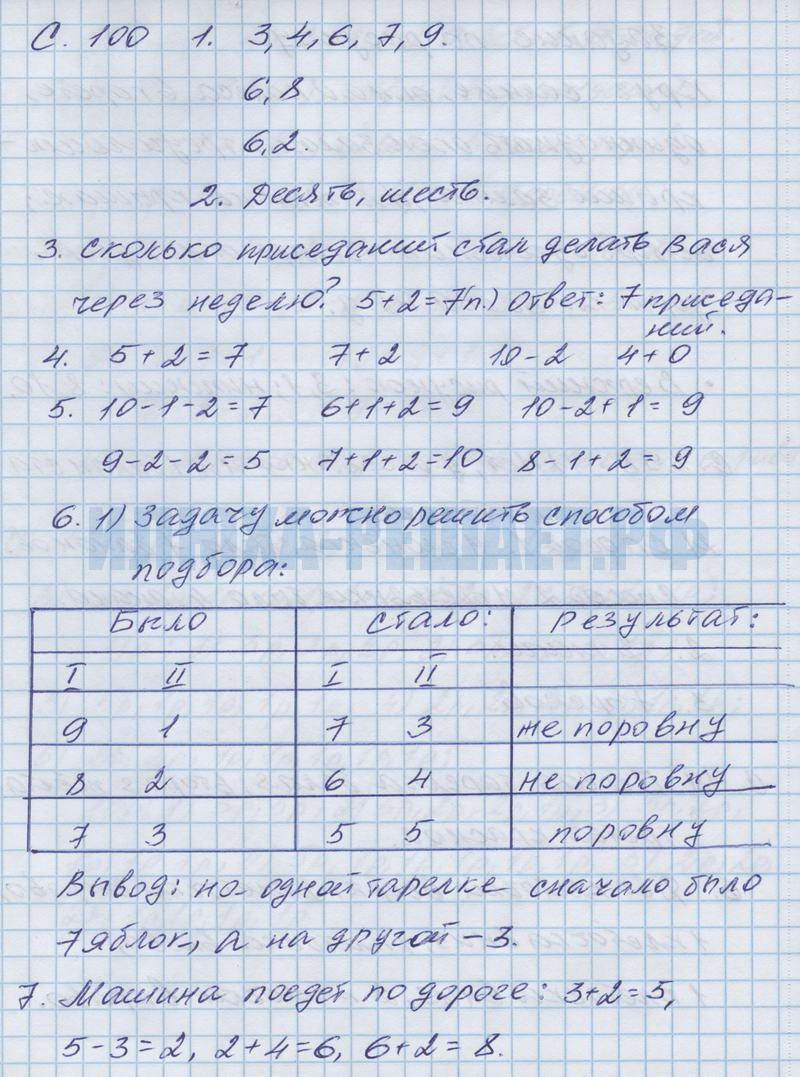 С. 100 1. 3, 4, 6, 7, 9.
6, 8
6, 2.
2. Десять, шесть.
3. Сколько приседаний стал делать Вася
через неделю? 5+2=7(п.) Ответ: 7 приседа-
ний.
4. 5+2=7 7+2 10-2 4+0
5. 10-1-2=7 6+1+2=9 10-2+1=9
9-2-2=5 7+1+2=10 8-1+2=9
6. 1) Задачу можно решить способом
подбора:
Было Стало: Результат:
I II I II
9 1 7 3 не поровну
8 2 6 4 не поровну
7 3 5 5 поровну
Вывод: на одной тарелке сначало было
7 яблок, а на другой – 3.
7. Машина поедет по дороге: 3+2=5,
5-3=2, 2+4=6, 6+2=8.